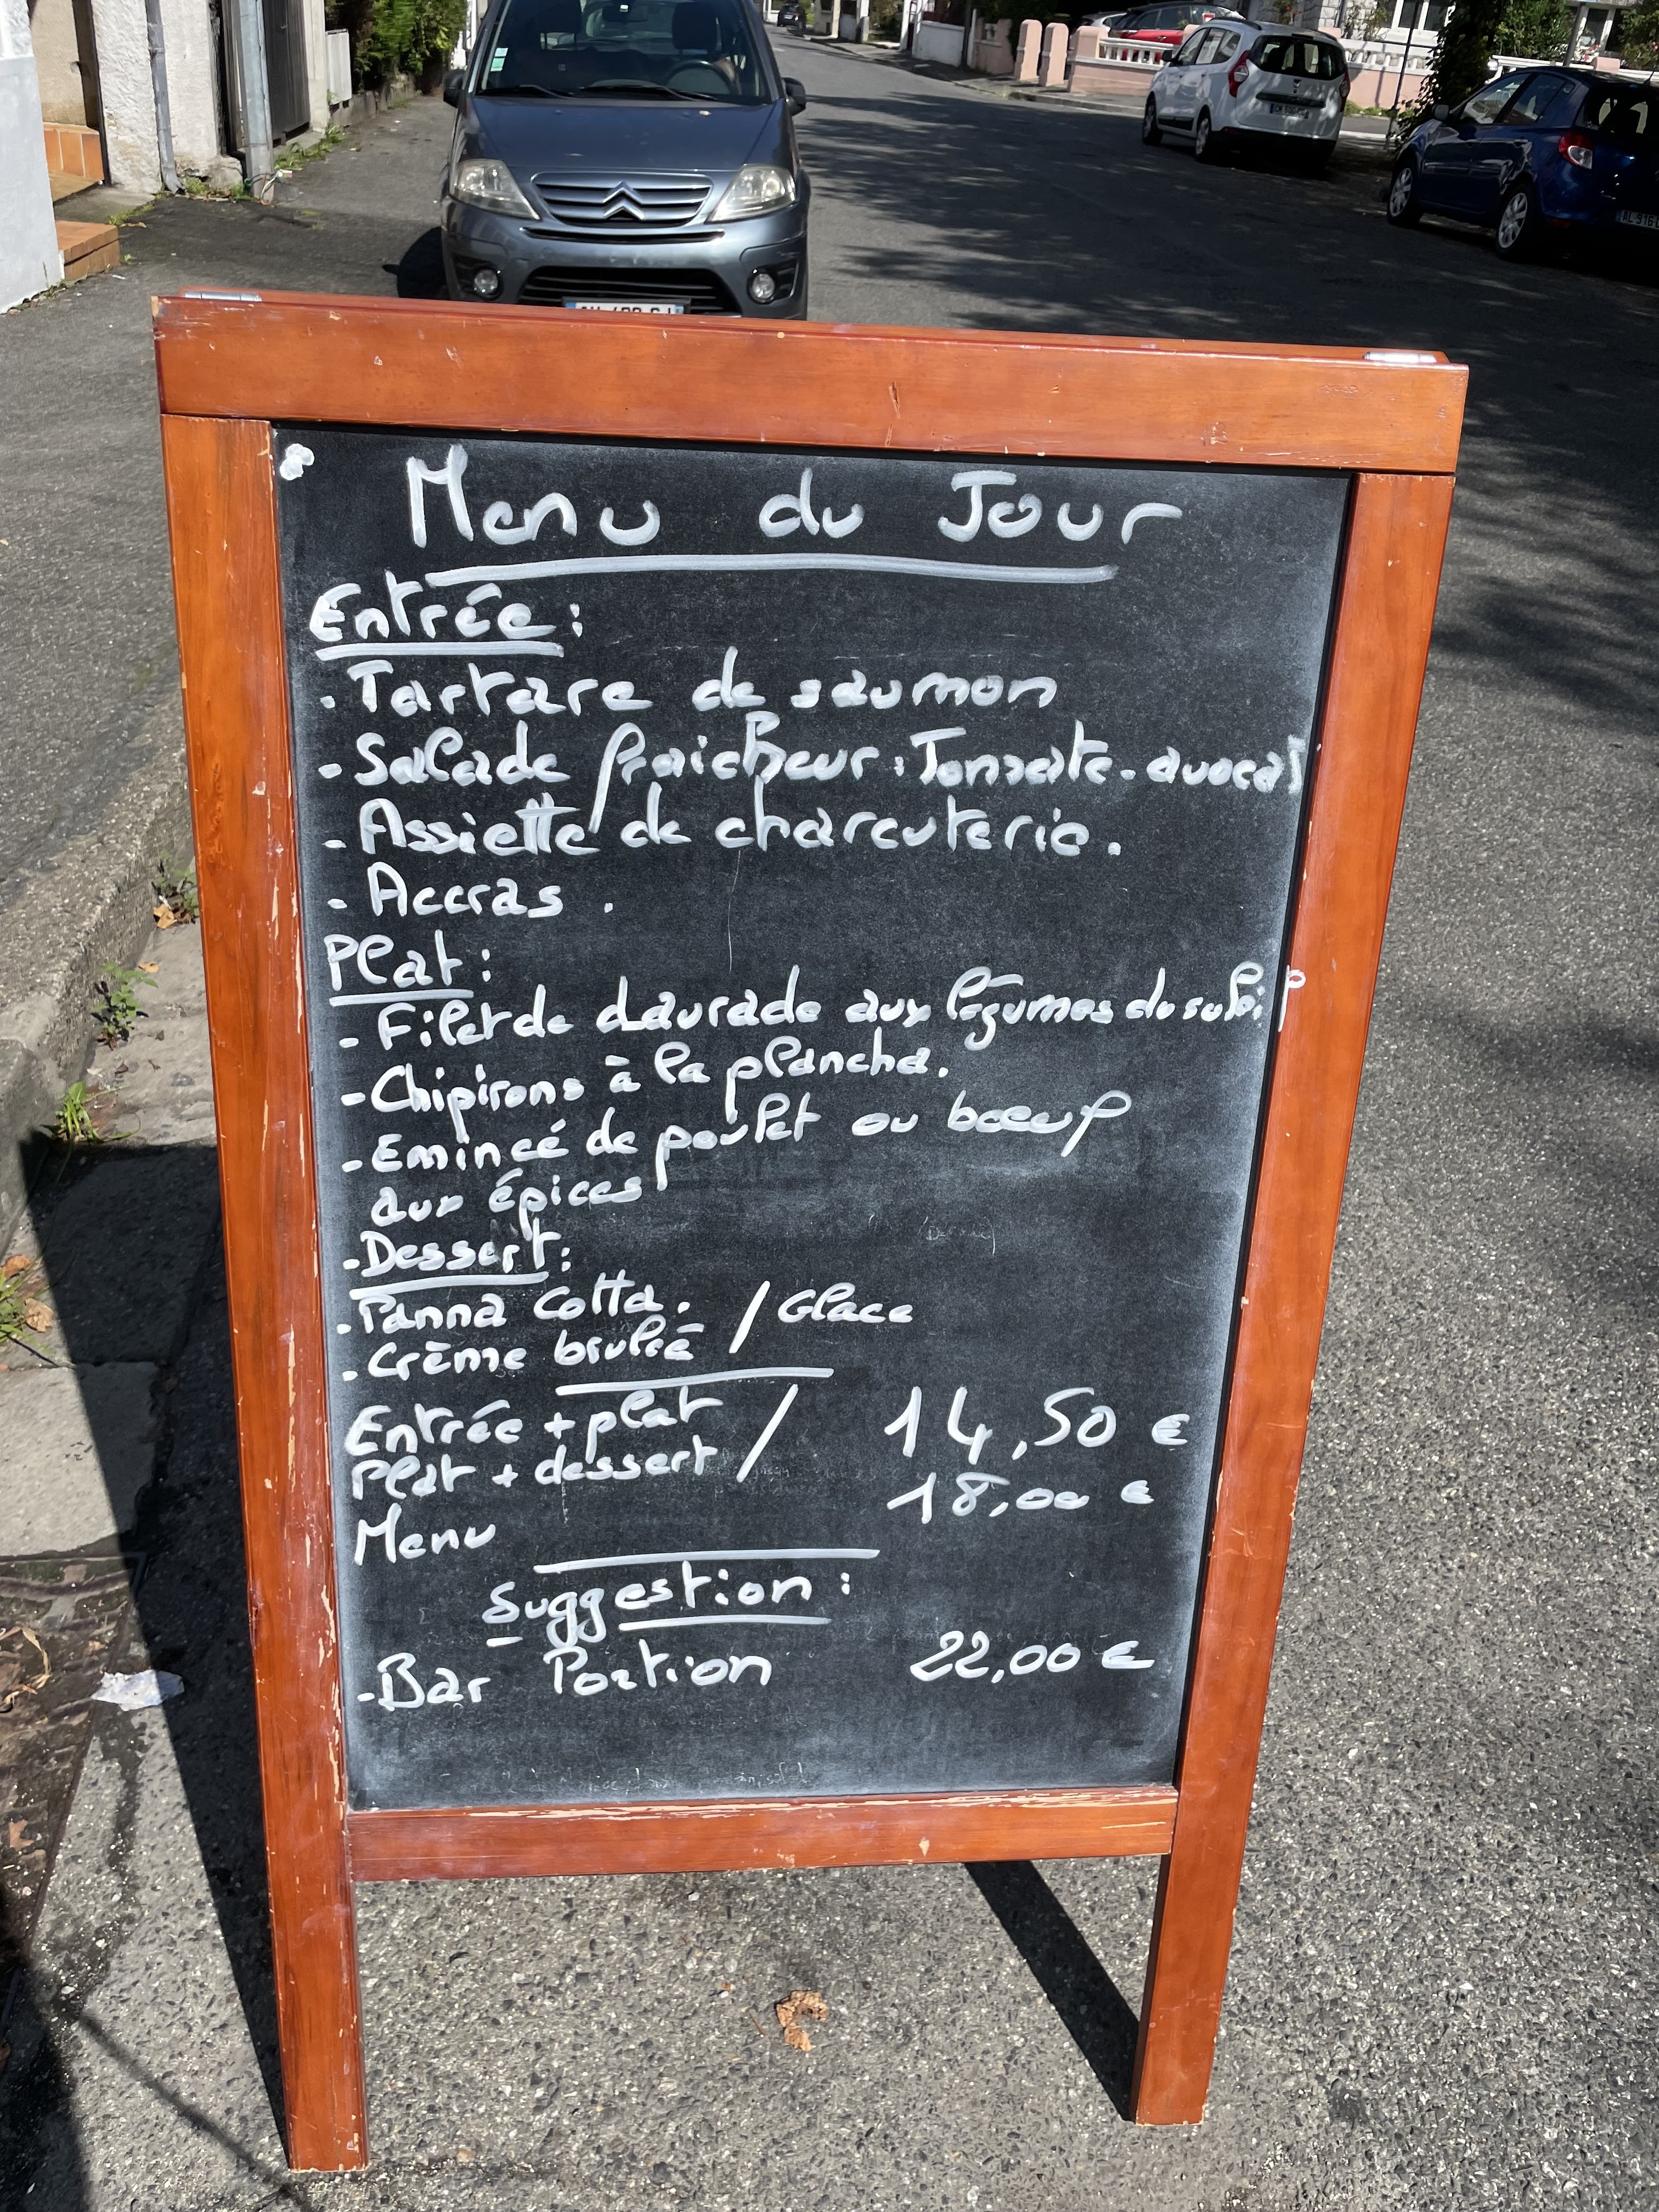 Menu du Jour
Entrée :
. Tartare de saumon
- Salade fraicheur : Tomate - avocat
- Assiette de charcuterie .
- Accras .
Plat :
- Filet de daurade aux légumes du soleil
- Chipirons à la plancha .
- Emincé de poulet ou boeuf
aux épices
. Dessert :
. Panna Cotta . / Glace
. Crème brulée
Entrée + plat / 14,50 €
Plat + dessert
Menu 18,00 €
Suggestion :
- Bar Portion 22,00 €